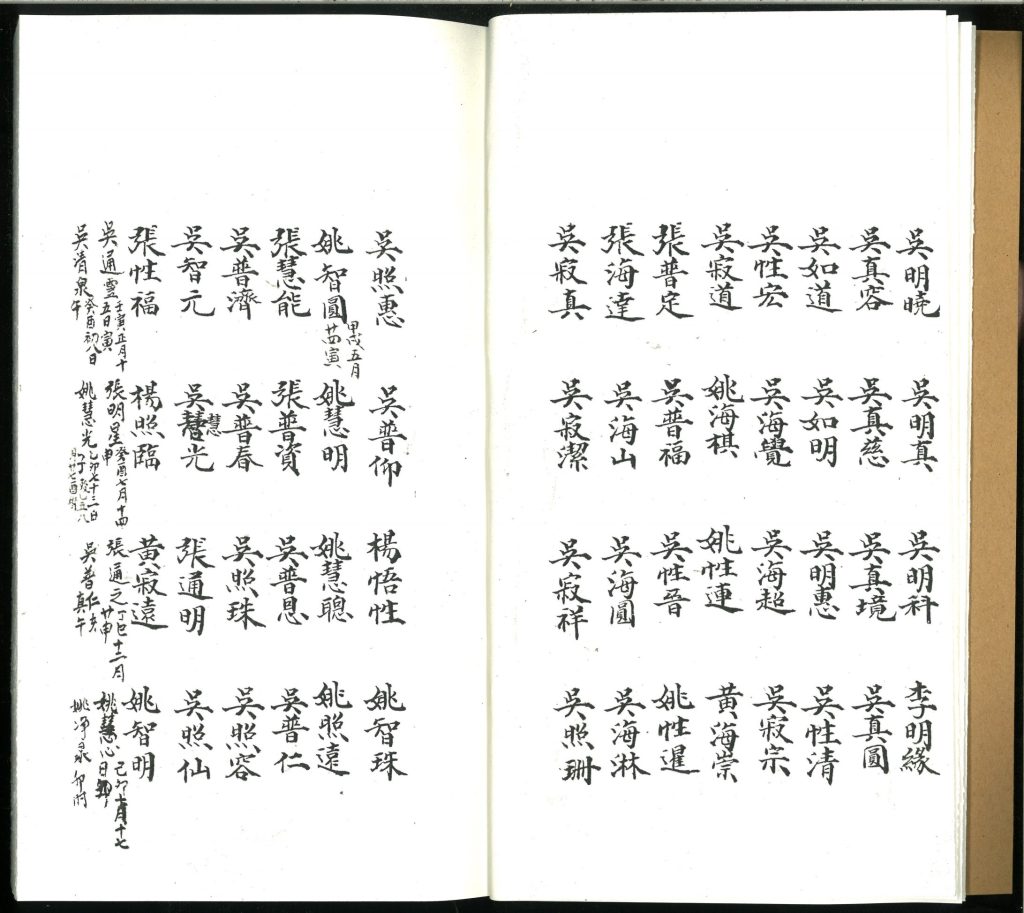 吳明曉 吳明真 吳明科 李明緣
吳真容 吳真慈 吳真境 吳真圓
吳如道 吳如明 吳明惠 吳性清
吳性宏 吳海覺 吳海超 吳寂宗
吳寂道 姚海棋 姚性連 黃海崇
張普定 吳普福 吳性晉 姚性暹
張海達 吳海山 吳海圓 吳海淋
吳寂真 吳寂潔 吳寂祥 吳照珊
吳照惠 吳普仰 楊悟性 姚智珠
姚智圓 甲戌五月廿四寅 姚慧明 姚慧聰 姚照遠
張慧能 張普資 吳普恩 吳普仁
吳普濟 吳普春 吳照珠 吳照容
吳智元 吳慧光 慧 張通明 吳照仙
張性福 楊照臨 黃寂遠 姚智明
吳通靈 壬寅正月十五日寅 張明星 癸酉七月十四申 張通之 丁巳十二月廿申 姚慧心 己卯 月十七日
吳清泉 癸酉初八日午 姚慧光 乙卯七十三日 吳普仁 真午 姚淨泉 卯時